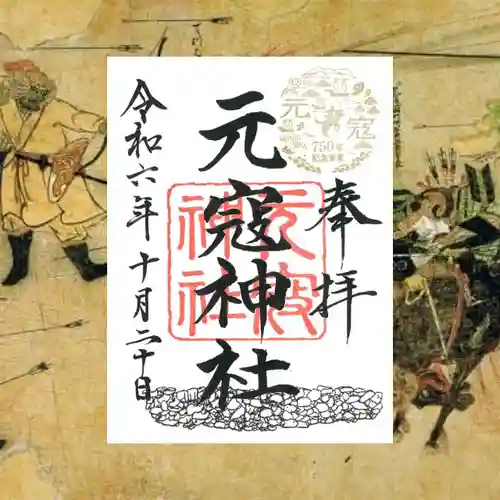 奉拝
元寇神社
令和六年十月二十日
元寇
750年
記念事業
元寇神社